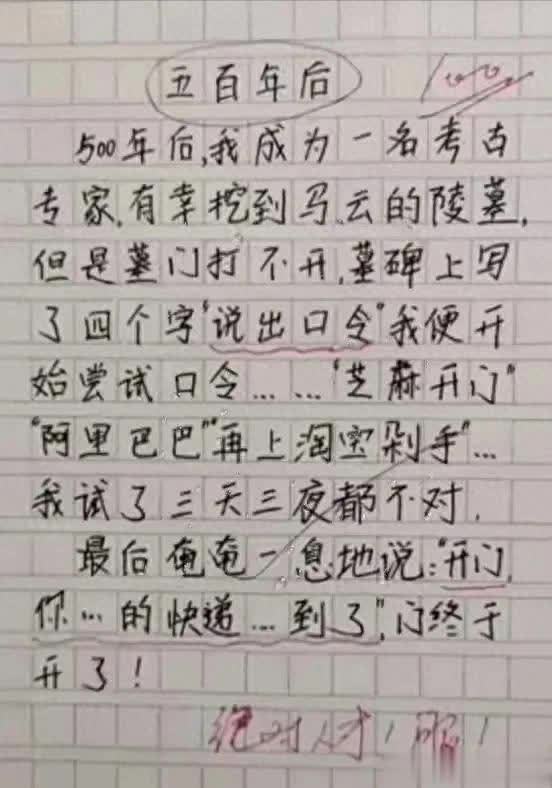 五百年后
100
500年后,我成为一名考古
专家,有幸挖到马云的陵墓,
但是墓门打不开,墓碑上写
了四个字"说出口令"我便开
始尝试口令……"芝麻开门"
"阿里巴巴""再上淘宝剁手"…
我试了三天三夜都不对.
最后奄奄一息地说:"开门,
你…的快递…到了",门终于
开了!
绝对人才!服!